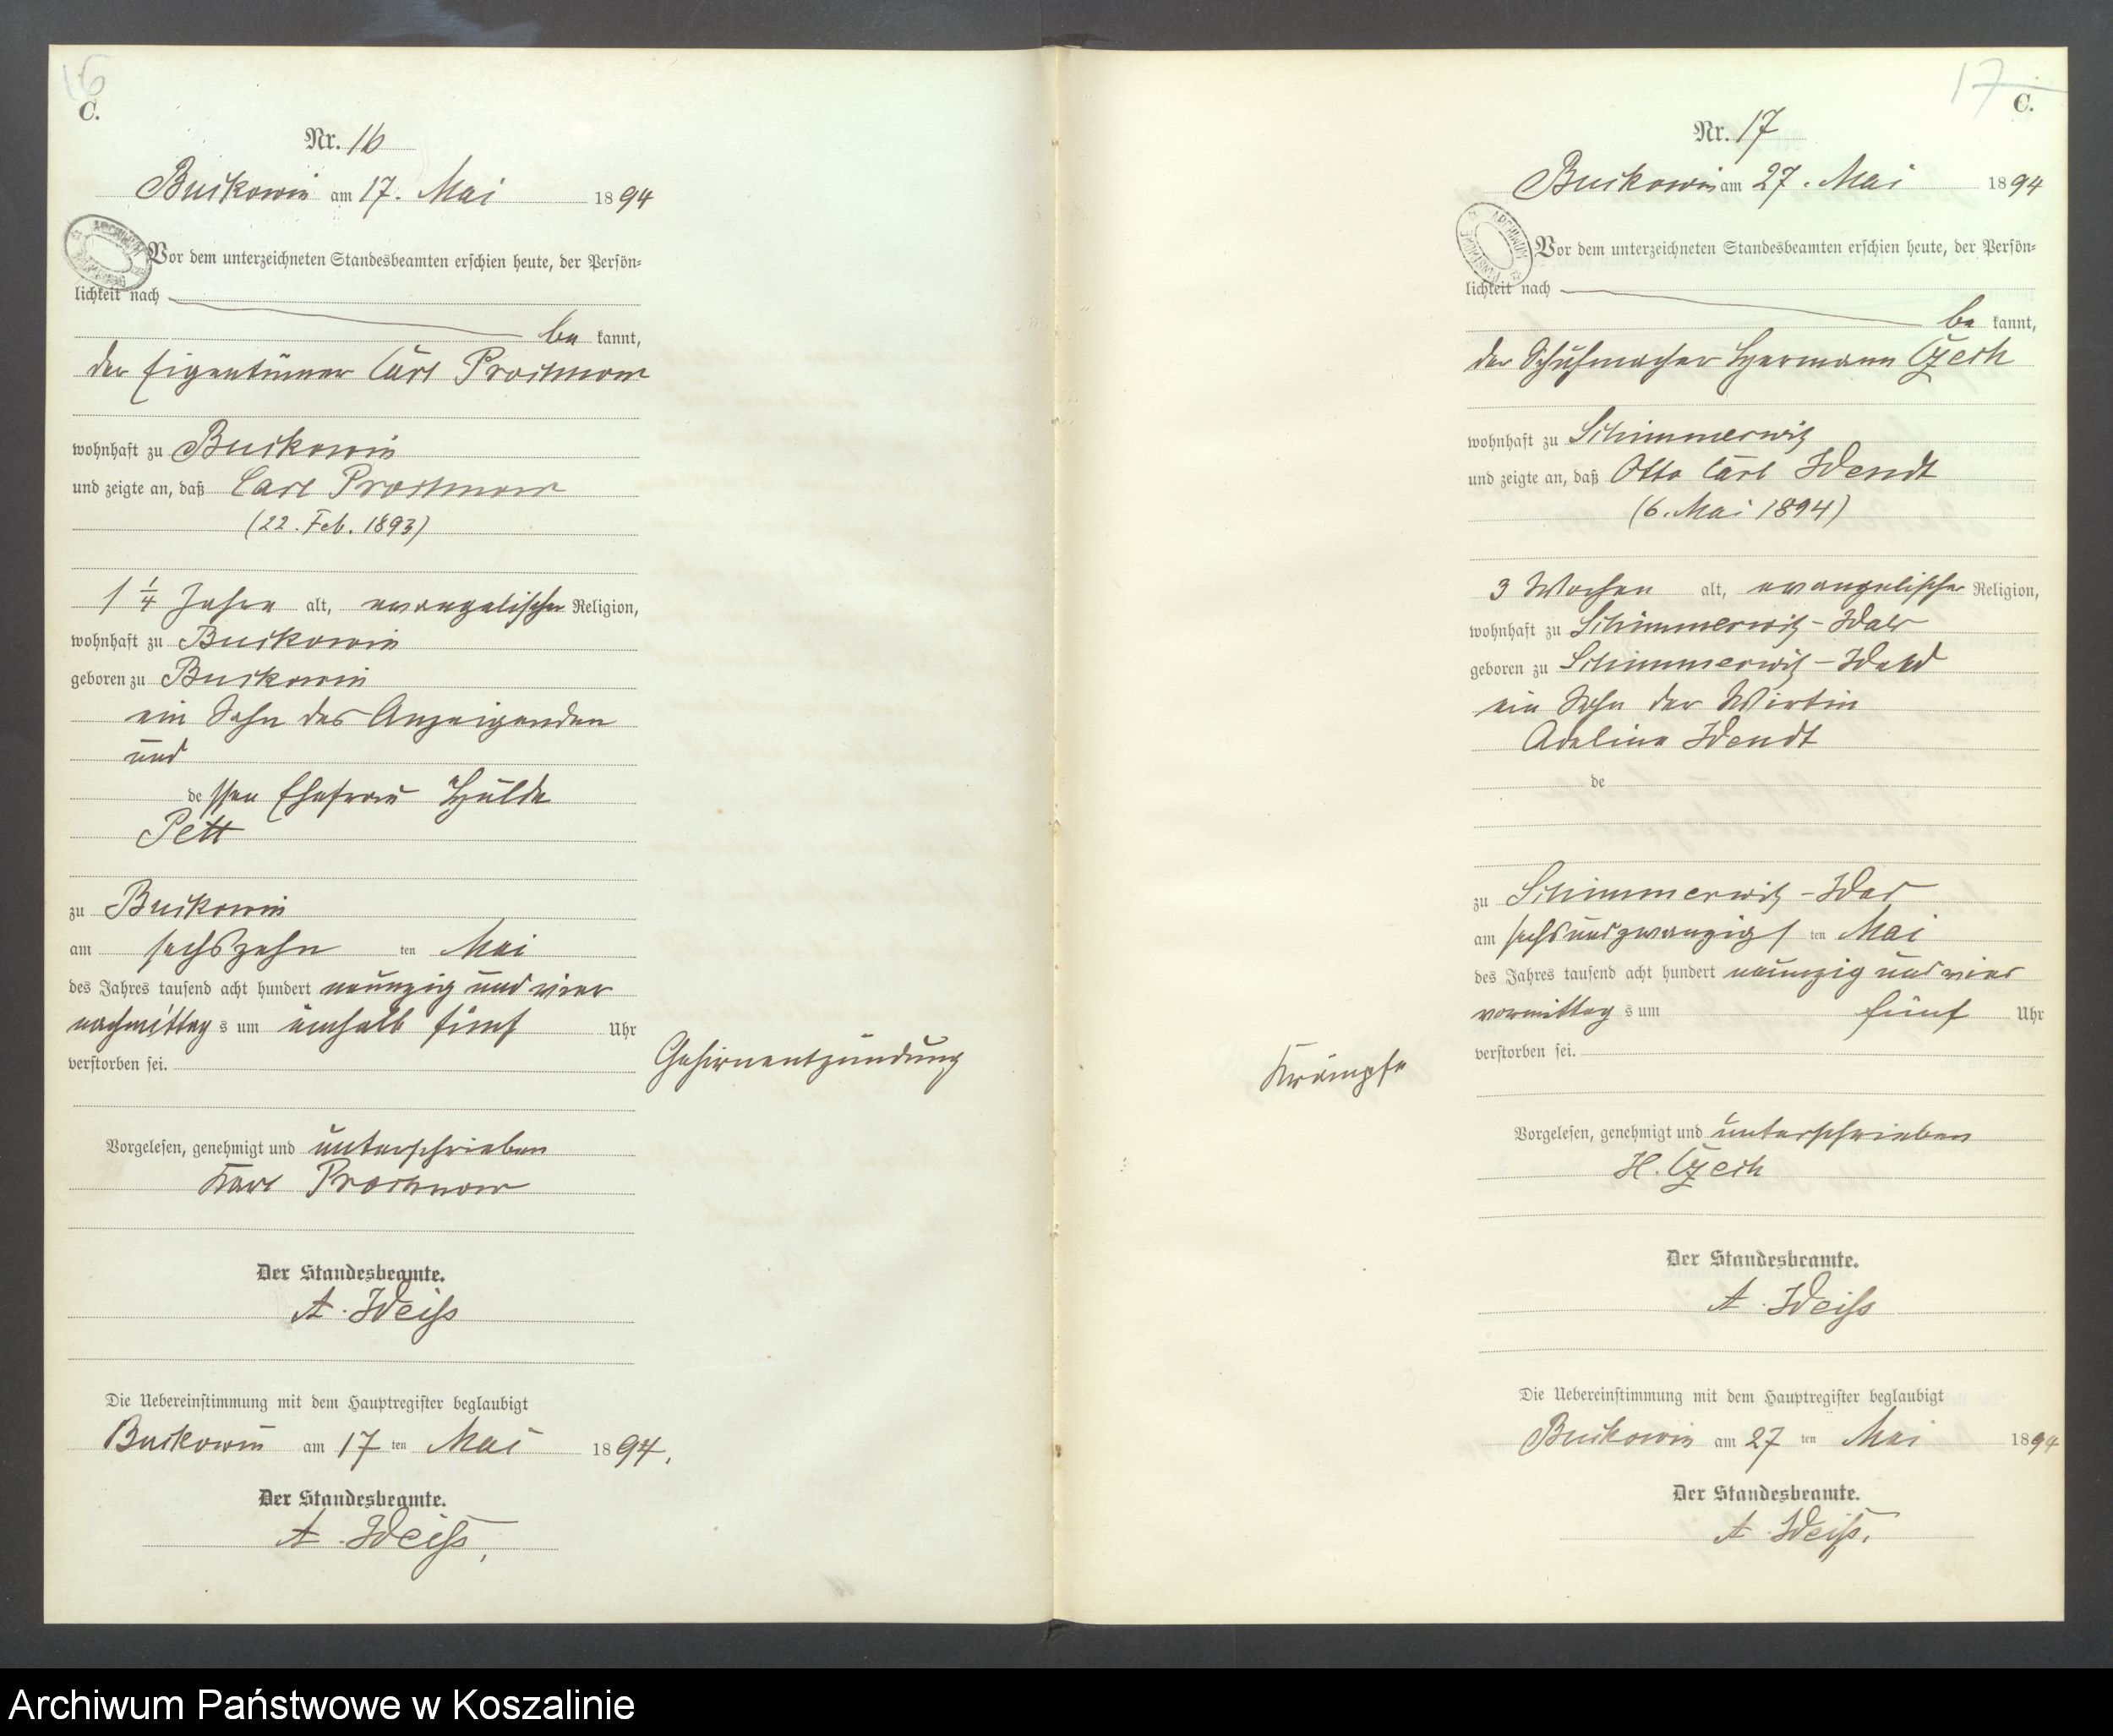 16
C.
Nr. 16
Buckowin am 17. Mai 1894
Vor dem unterzeichneten Standesbeamten erschien heute, der Persön-
lichkeit nach
be kannt,
der Eigentümer Carl Prochnow
wohnhaft zu Buckowin
und zeigte an, daß Carl Prochnow
(22. Feb. 1893)
1 1/4 Jahre alt, evangelischer Religion,
wohnhaft zu Buckowin
geboren zu Buckowin
ein Sohn des Anzeigenden
und
dessen Ehefrau Hulda
Pett
zu Buckowin
am sechszehn ten Mai
des Jahres tausend acht hundert neunzig und vier
nachmittag s um einhalb fünf Uhr
verstorben sei.
Gehirnentzündung
Vorgelesen, genehmigt und unterschrieben
Karl Prochnow
Der Standesbeamte.
A. Weiß
Die Uebereinstimmung mit dem Hauptregister beglaubigt
Buckowin am 17 ten Mai 1894.
Der Standesbeamte.
A. Weiß.
17
C.
Nr. 17
Buckowin am 27. Mai 1894
ARCHIWUM
Vor dem unterzeichneten Standesbeamten erschien heute, der Persön-
lichkeit nach
be kannt,
der Schuhmacher Hermann Czech
wohnhaft zu Schimmerwitz
und zeigte an, daß Otto Carl Wendt
(6. Mai 1894)
3 Wochen alt, evangelischer Religion,
wohnhaft zu Schimmerwitz-Wald
geboren zu Schimmerwitz-Wald
ein Sohn der Wirtin
Adeline Wendt
de
zu Schimmerwitz-Wald
am sechsundzwanzigs ten Mai
des Jahres tausend acht hundert neunzig und vier
vormittag s um fünf Uhr
verstorben sei.
Krämpfe
Vorgelesen, genehmigt und unterschrieben
H. Czech
Der Standesbeamte.
A. Weiß
Die Uebereinstimmung mit dem Hauptregister beglaubigt
Buckowin am 27 ten Mai 1894
Der Standesbeamte.
A. Weiß.
Archiwum Państwowe w Koszalinie